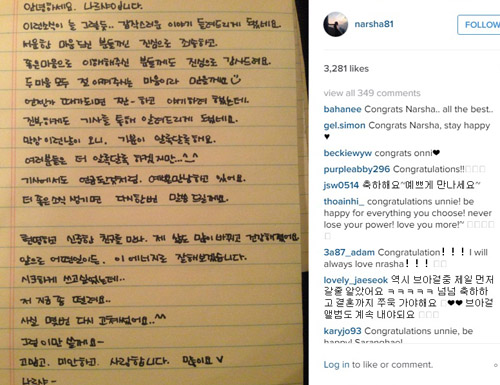 안녕하세요. 나르샤입니다.
이런소식이 늘 그렇듯.. 갑작스러운 이야기 들려드리게 됐네요.
서운한 마음드신 분들껜 진심으로 죄송하고,
좋은마음으로 이해해주신 분들께도 진심으로 감사드려요.
두마음 모두 절 아껴주시는 마음이라 믿을게요
언젠가 때가되면 짠-하고 얘기하려 했는데..
진부하게도 기사를 통해 알려드리게 됐네요.
막상 이런날이 오니, 기분이 얼룩달룩해요.
여러분들은 더 얼룩달룩 하겠지만...^_^
기사에서도 언급된것처럼, 하고 있어요.
더 좋은소식 생기면 다시한번 말씀 드릴게요.
현명하고 신중한 친구를 만나, 제 삶도 많이 바뀌고 건강해졌어요.
앞으로 어떤일이든, 이 에너지로 잘해보겠습니다.
시크하게 쓰고싶었는데..
저 지금 좀 떨려요..
사실 몇번 다시 고쳐썼어요..^^
그럼 이만 쓸게요-
고맙고, 미안하고, 사랑합니다. 많이요 V
나르샤-
narsha81
FOLLOW
3,281 likes
view all 349 comments
bahanee Congrats Narsha.. all the best..
gel.simon Congrats Narsha, stay happy
♥
beckiewyw congrats onni♥
purpleabby296 Congratulations!!
jsw0514 축하해요~예쁘게 만나세요~!
thoainhi_ congratulations unnie! be
happy for everything you choose! never
lose your power! love you more!~
3a87_adam Congratulation！！！ I will
always love nrasha！！！
lovely_jaeseok 역시 브아걸중 제일 먼저
갈줄 알았어요 ㅋㅋㅋㅋㅋ 넘넘 축하하
고 결혼까지 쭈욱 가야해요 ♥♥ 브아걸
앨범도 계속 내야되요
karyjo93 Congratulations unnie, be
happy! Saranghae!
Log in to like or comment.